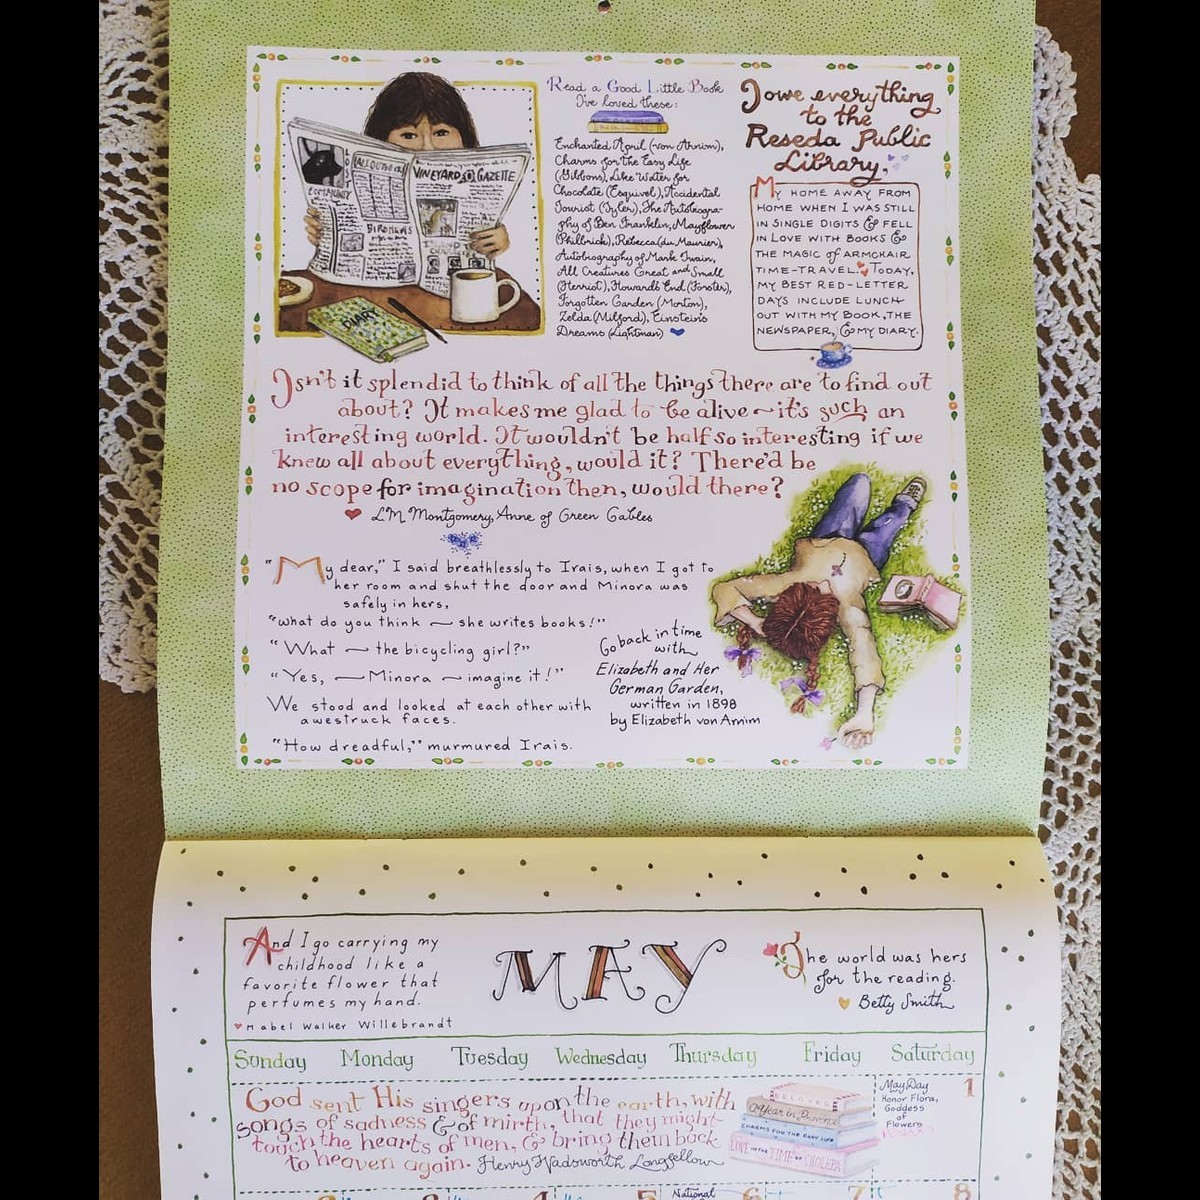 Read a Good Little Book
I've loved these:
Enchanted April (von Arnim),
Charms for the Easy Life
(Gibbons), Like Water for
Chocolate (Esquivel), Accidental
Tourist (Tyler), The Autobiogra-
phy of Ben Franklin, Mayflower
(Philbrick), Rebecca (du Maurier),
Autobiography of Mark Twain,
All Creatures Great and Small
(Herriot), Howards End (Forster),
Forgotten Garden (Morton),
Zelda (Milford), Einstein's
Dreams (Lightman)
I owe everything
to the
Reseda Public
Library,
My home away from
home when I was still
in single digits & fell
in love with books &
the magic of armchair
time-travel. Today,
my best red-letter
days include lunch
out with my book, the
newspaper, & my diary.
VINEYARD GAZETTE
COMMUNITY
BIRD NEWS
DIARY
Isn't it splendid to think of all the things there are to find out
about? It makes me glad to be alive ~ it's such an
interesting world. It wouldn't be half so interesting if we
knew all about everything, would it? There'd be
no scope for imagination then, would there?
♥ LM Montgomery, Anne of Green Gables
"My dear," I said breathlessly to Irais, when I got to
her room and shut the door and Minora was
safely in hers,
"what do you think ~ she writes books!"
"What ~ the bicycling girl?"
"Yes, ~ Minora ~ imagine it!"
We stood and looked at each other with
awestruck faces.
"How dreadful," murmured Irais.
Go back in time
with
Elizabeth and Her
German Garden,
written in 1898
by Elizabeth von Arnim
And I go carrying my
childhood like a
favorite flower that
perfumes my hand.
♥ Mabel Walker Willebrandt
MAY
The world was hers
for the reading.
♥ Betty Smith
Sunday Monday Tuesday Wednesday Thursday Friday Saturday
God sent His singers upon the earth, with
songs of sadness & of mirth, that they might
touch the hearts of men, & bring them back
to heaven again. Henry Wadsworth Longfellow
BELOVED
A Year in Provence
CHARMS FOR THE EASY LIFE
LOVE IN THE TIME OF CHOLERA
1
May Day
Honor Flora,
Goddess
of
Flowers
2 3 4 5 6 7 8
National